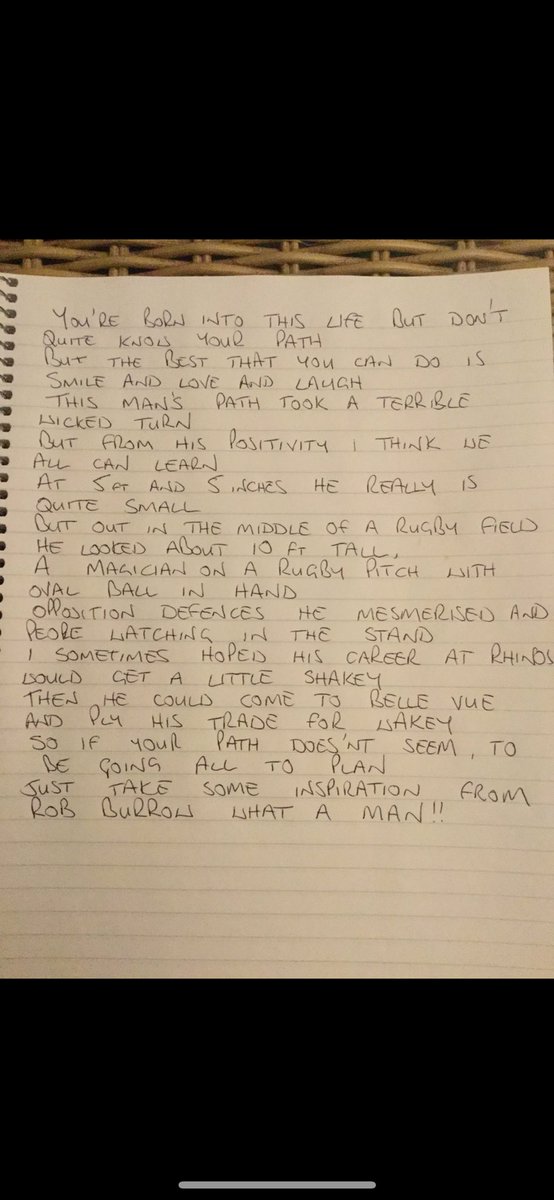 YOU'RE BORN INTO THIS LIFE BUT DON'T
QUITE KNOW YOUR PATH
BUT THE BEST THAT YOU CAN DO IS
SMILE AND LOVE AND LAUGH
THIS MAN'S PATH TOOK A TERRIBLE
WICKED TURN
BUT FROM HIS POSITIVITY I THINK WE
ALL CAN LEARN
AT 5FT AND 5 INCHES HE REALLY IS
QUITE SMALL
BUT OUT IN THE MIDDLE OF A RUGBY FIELD
HE LOOKED ABOUT 10 FT TALL,
A MAGICIAN ON A RUGBY PITCH WITH
OVAL BALL IN HAND
OPPOSITION DEFENCES HE MESMERISED AND
PEOPLE WATCHING IN THE STAND
I SOMETIMES HOPED HIS CAREER AT RHINOS
WOULD GET A LITTLE SHAKEY
THEN HE COULD COME TO BELLE VUE
AND PLY HIS TRADE FOR WAKEY
SO IF YOUR PATH DOES'NT SEEM, TO
BE GOING ALL TO PLAN
JUST TAKE SOME INSPIRATION FROM
ROB BURROW WHAT A MAN!!